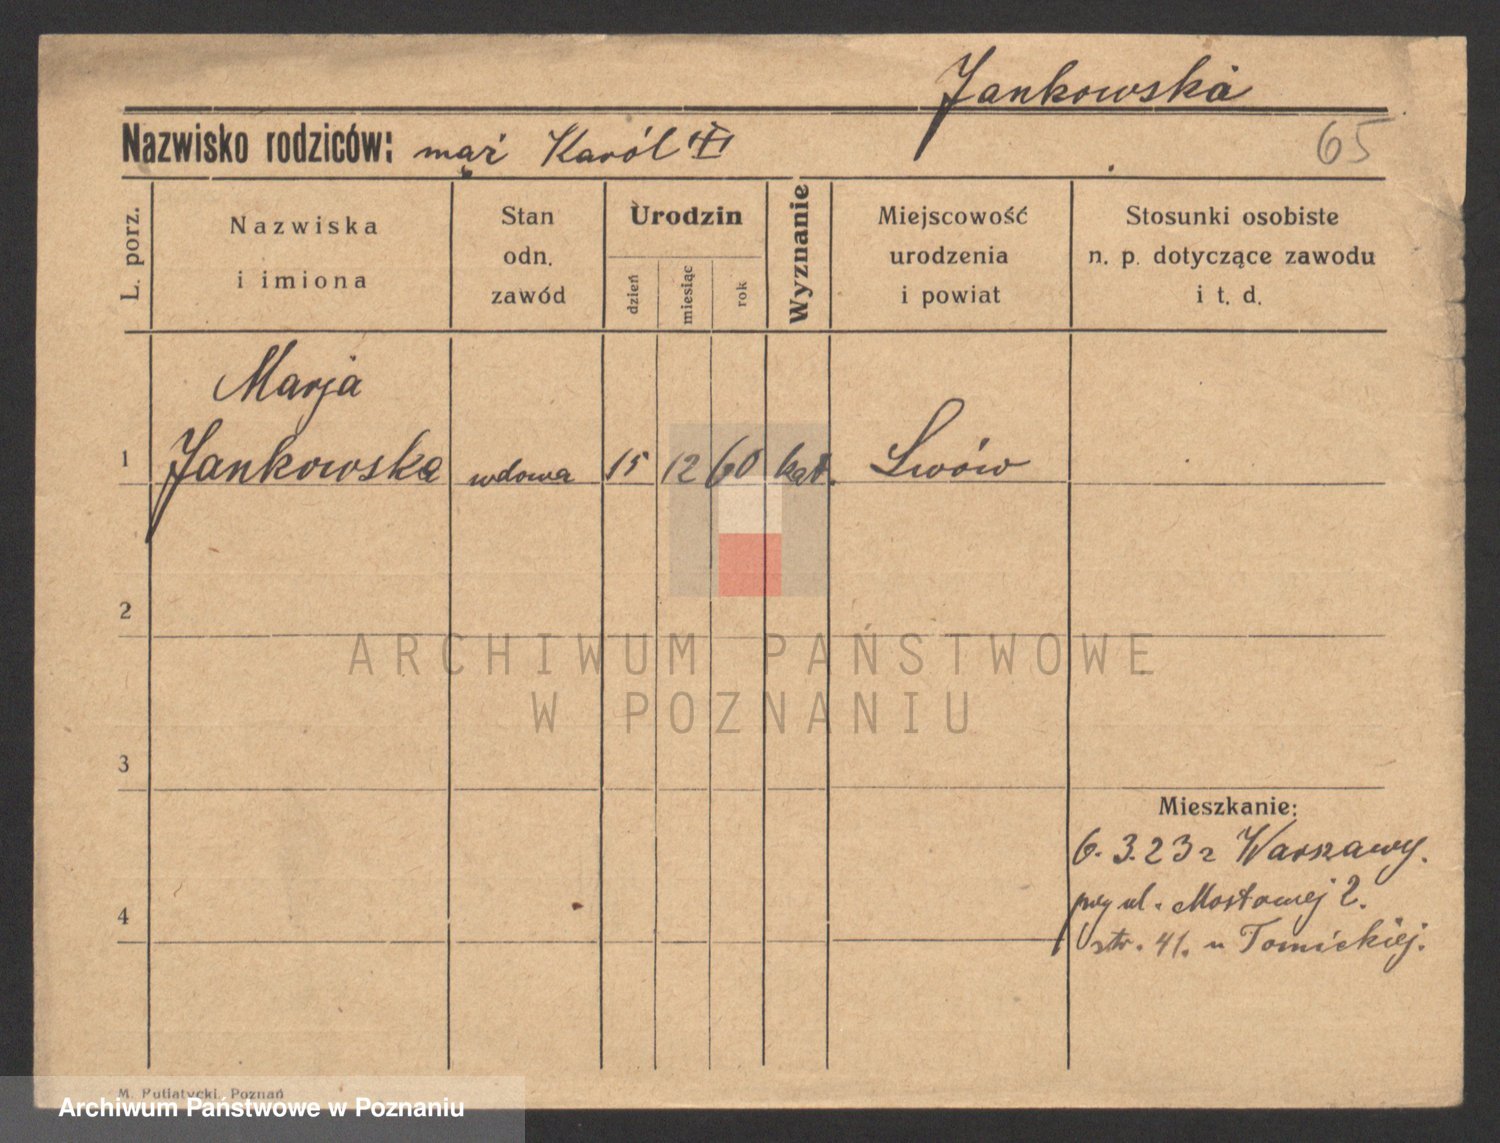 Jankowska
Nazwisko rodziców: mąż Karól
65
L. porz.
Nazwiska
i imiona
Stan
odn.
zawód
Urodzin
dzień
miesiąc
rok
Wyznanie
Miejscowość
urodzenia
i powiat
Stosunki osobiste
n. p. dotyczące zawodu
i t. d.
Marja
1 Jankowska wdowa 15 12 60 kat. Lwów
2
ARCHIWUM PAŃSTWOWE
W POZNANIU
3
Mieszkanie:
6. 3. 23 z Warszawy.
przy ul. Mostowej 2.
4
str. 41. u Tomickiej.
M. Putiatycki, Poznań
Archiwum Państwowe w Poznaniu